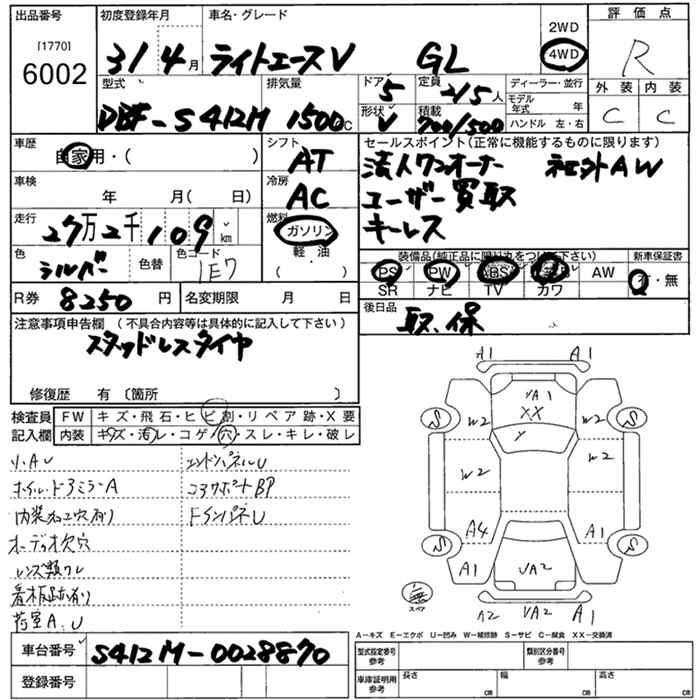 出品番号 初度登録年月 車名・グレード 2WD 評価点
[1770]
6002 31 4月 ライトエースV GL 4WD R
型式 排気量 ドア 5 定員 2/5人 ディーラー・並行 外装 内装
DBF-S412M 1500cc 形状 V 積載 700/500 モデル年式 年 C C
ハンドル 左・右
車歴 自家用・( ) シフト AT セールスポイント(正常に機能するものに限ります)
車検 年 月( 日) 冷房 AC 法人ワンオーナー 社外AW
ユーザー買取
走行 27万2千109km 燃料 ガソリン キーレス
軽・油
( )
色 シルバー 色替 色コード 1E7 装備品(純正品に限り丸をつけて下さい) 新車保証書
PS PW ABS AW 有・無
SR ナビ TV カワ
R券 8250円 名変期限 月 日 後日品 取、保
注意事項申告欄 (不具合内容等は具体的に記入して下さい)
スタッドレスタイヤ
修復歴 有〔箇所 〕
検査員 FW キズ・飛石・ヒビ割・リペア跡・X要
記入欄 内装 キズ・汚レ・コゲ・穴・スレ・キレ・破レ
小AU エンドパネルU
ホイル・ドアミラーA コアサポートBP
内装加工穴有り FインパネU
オーディオ欠穴
レンズ類ワレ
看板跡有り
荷室A.U
A1 A1
VA1
XX
S W2 Y W2 S
W2 W2
A4 A1
S A1 VA2 S
スペア
A2 VA2 A1
A-キズ E-エクボ U-凹み W-補修跡 S-サビ C-腐食 XX-交換済
車台番号 S412M-0028870 型式指定番号 参考 類別区分番号 参考
登録番号 車庫証明用 参考 長さ cm 幅 cm 高さ cm